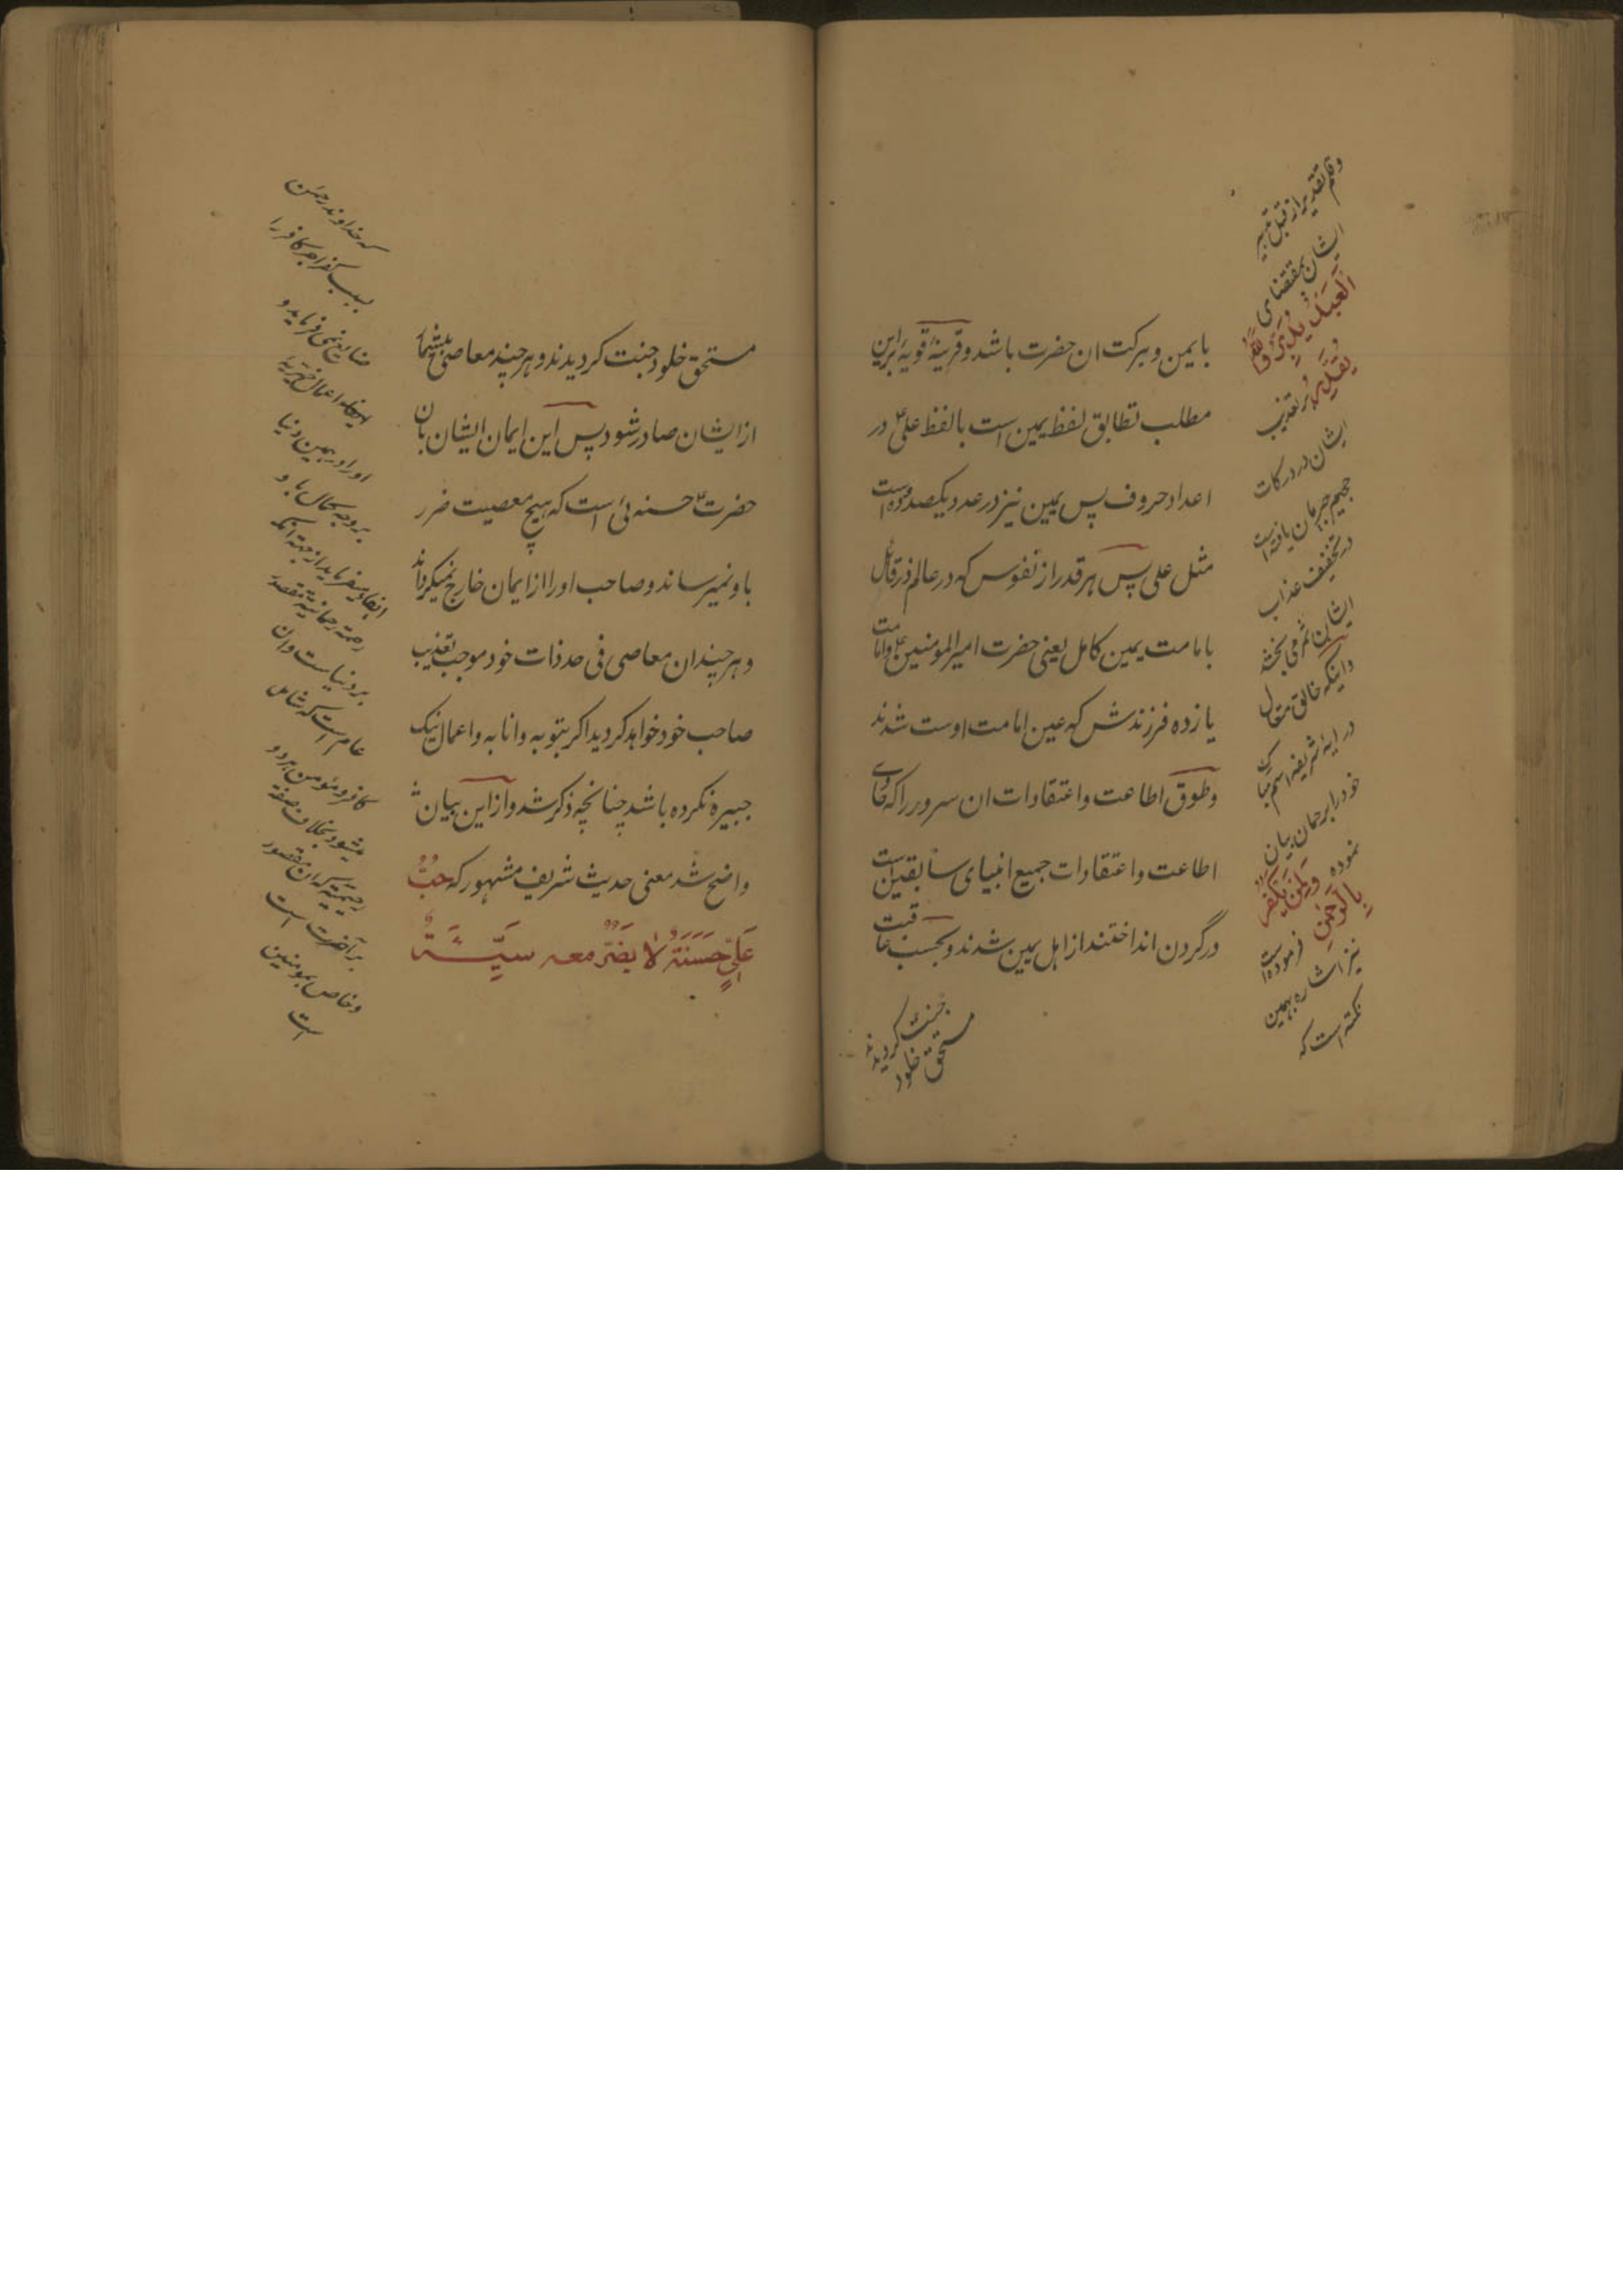 بایمن و برکت ان حضرت باشد و قرینهٔ قویهٔ براین
مطلب تطابق لفظ یمین است بالفظ علیؑ در
اعداد حروف پس یمین نیز در عدد یکصد و ده است
مثل علی پس هر قدر از نفوس که در عالم ذر قائل
بامامت یمین کامل یعنی حضرت امیرالمومنینؑ و امامت
یازده فرزندش که عین امامت اوست شدند
و طوق اطاعت و اعتقادات ان سرور را که حاوی
اطاعت و اعتقادات جمیع انبیای سابقین است
در گردن انداختند از اهل یمین شدند و بحسب عاقبت
مستحق خلود
جنت کردیدند
و قلم تقدیر از قبل
ایشان بمقتضای
العبد یدبر و الله
یقدر بر تعذیب
ایشان در درکات
جحیم جریان یافته است
در تخفیف عذاب
ایشان ثمر می بخشد
و اینکه خالق متعال
در ایهٔ شریفه اسم
خود را برحمان بیان
نموده و لمن یکفر
بالرحمن فرموده است
نیز اشاره بهمین
نکته است که
مستحق خلود جنت کردیدند و هر چند معاصی بیشمار
از ایشان صادر شود پس این ایمان ایشان بان
حضرتؑ حسنه ئی است که هیچ معصیت ضرر
باو نمیرساند و صاحب او را از ایمان خارج نمیکرداند
و هر چند ان معاصی فی حد ذات خود موجب تعذیب
صاحب خود خواهد کردید اکر بتوبه و انابه و اعمال نیک
جبیره نکرده باشد چنانچه ذکر شد و از این بیان
واضح شد معنی حدیث شریف مشهور که حُبُّ
عَلِیٍّ حَسَنَةٌ لا یَضُرُّ معه سَیِّئَةٌ
که خداوند رحمن
بسبب کفر اجر کافر را
ضایع نمی فرماید و
اعمال خیریهٔ
او را در همین دنیا
بر وجه کمال باو
ایفاد میفرماید از جهة انکه
رحمة رحمانیة مقصور
بر دنیاست و ان
عام است که شامل
کافر و مؤمن هر دو
میشود بخلاف صفة
رحیمیة که ان مقصور
بر آخرت است
و خاص بمومنین
است